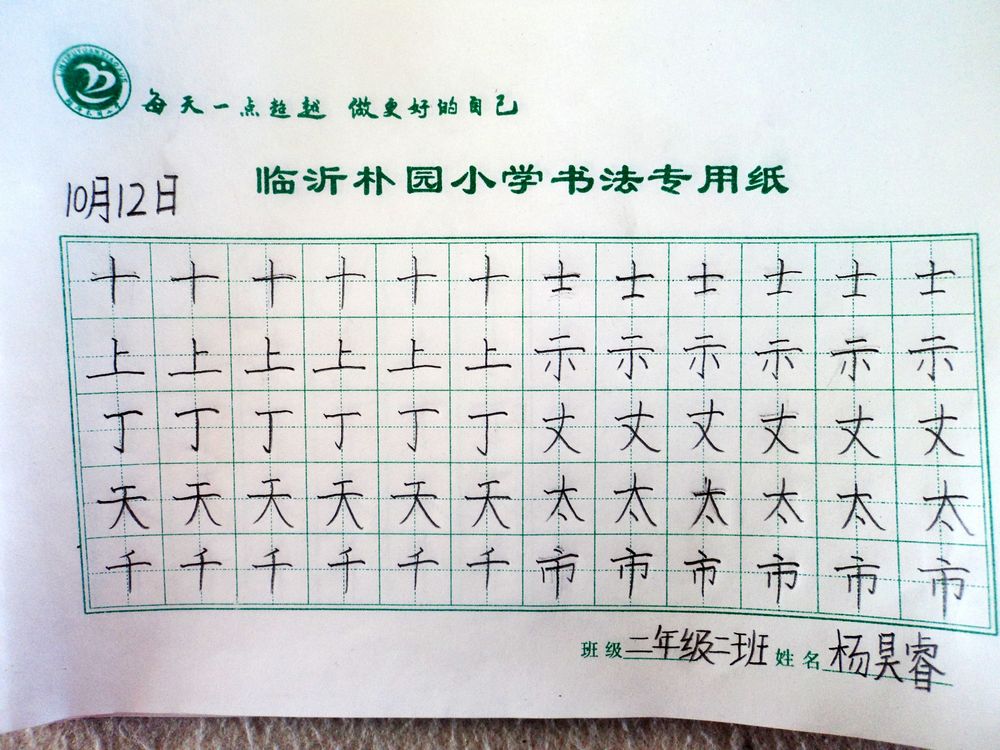 每天一点超越 做更好的自己
临沂朴园小学书法专用纸
10月12日
十十十十十十士士士士士士
上上上上上上示示示示示示
丁丁丁丁丁丁丈丈丈丈丈丈
天天天天天天太太太太太太
千千千千千千市市市市市市
班级二年级二班姓名杨昊睿